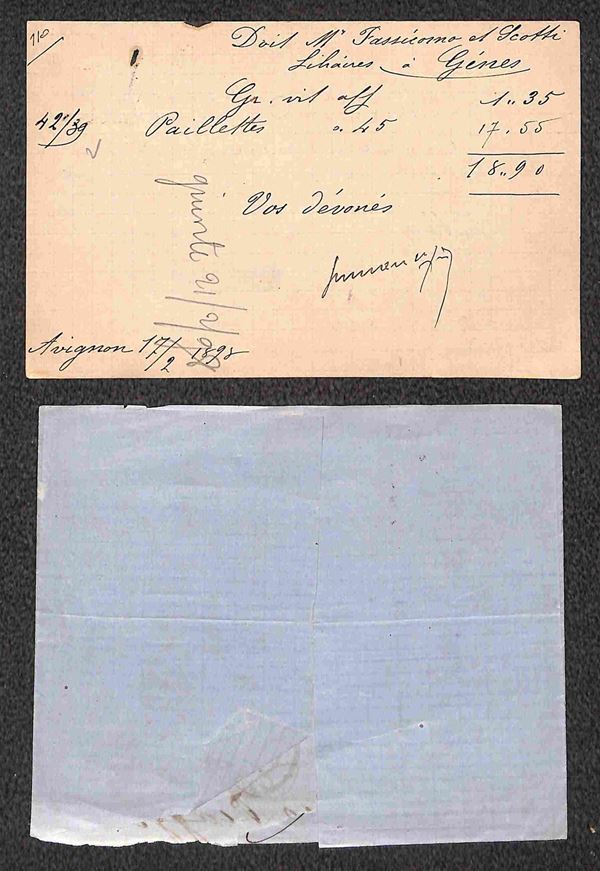 110
Doit Mr Fassicomo et Scotti
Libáires à Gênes
Gr. vit aff 1.. 35
42/39 Paillettes ". 45 17. 55
18.. 90
Vos dévoués
quinte 21/2/98
Avignon 17/2 1898